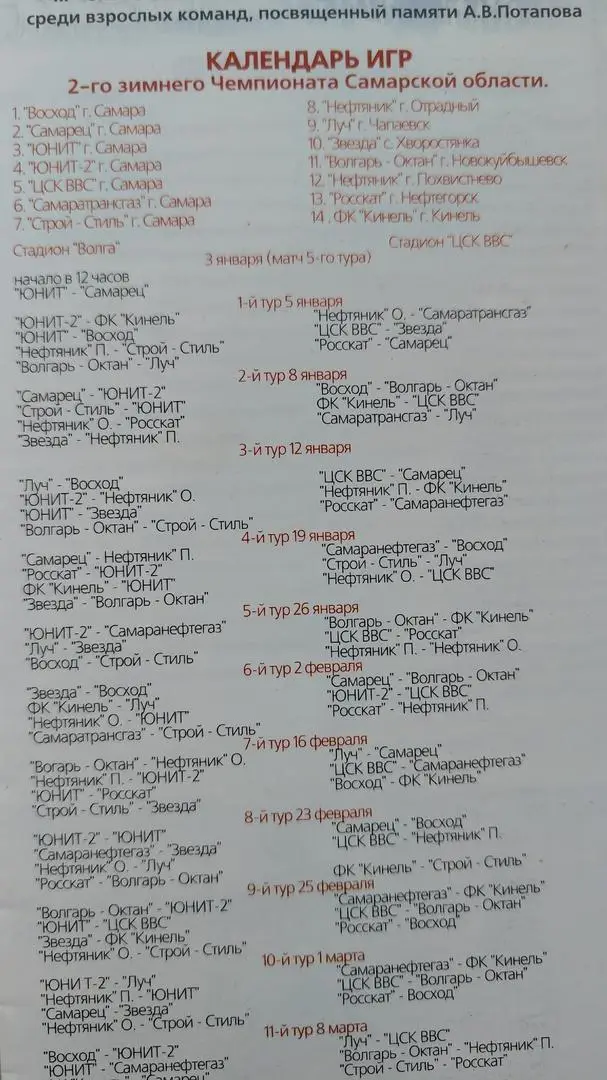 среди взрослых команд, посвященный памяти А.В.Потапова
КАЛЕНДАРЬ ИГР
2-го зимнего Чемпионата Самарской области.
1. "Восход" г. Самара
2. "Самарец" г. Самара
3. "ЮНИТ" г. Самара
4. "ЮНИТ-2" г. Самара
5. "ЦСК ВВС" г. Самара
6. "Самаратрансгаз" г. Самара
7. "Строй - Стиль" г. Самара
8. "Нефтяник" г. Отрадный
9. "Луч" г. Чапаевск
10. "Звезда" с. Хворостянка
11. "Волгарь - Октан" г. Новокуйбышевск
12. "Нефтяник" г. Похвистнево
13. "Росскат" г. Нефтегорск
14 . ФК "Кинель" г. Кинель
Стадион "Волга"
Стадион "ЦСК ВВС"
3 января (матч 5-го тура)
начало в 12 часов
"ЮНИТ" - "Самарец"
1-й тур 5 января
"ЮНИТ-2" - ФК "Кинель"
"ЮНИТ" - "Восход"
"Нефтяник" П. - "Строй - Стиль"
"Волгарь - Октан" - "Луч"
"Нефтяник" О. - "Самаратрансгаз"
"ЦСК ВВС" - "Звезда"
"Росскат" - "Самарец"
2-й тур 8 января
"Самарец" - "ЮНИТ-2"
"Строй - Стиль" - "ЮНИТ"
"Нефтяник" О. - "Росскат"
"Звезда" - "Нефтяник" П.
"Восход" - "Волгарь - Октан"
ФК "Кинель" - "ЦСК ВВС"
"Самаратрансгаз" - "Луч"
3-й тур 12 января
"Луч" - "Восход"
"ЮНИТ-2" - "Нефтяник" О.
"ЮНИТ" - "Звезда"
"Волгарь - Октан" - "Строй - Стиль"
"ЦСК ВВС" - "Самарец"
"Нефтяник" П. - ФК "Кинель"
"Росскат" - "Самаранефтегаз"
4-й тур 19 января
"Самарец" - Нефтяник" П.
"Росскат" - "ЮНИТ-2"
ФК "Кинель" - "ЮНИТ"
"Звезда" - "Волгарь - Октан"
"Самаранефтегаз" - "Восход"
"Строй - Стиль" - "Луч"
"Нефтяник" О. - "ЦСК ВВС"
5-й тур 26 января
"ЮНИТ-2" - "Самаранефтегаз"
"Луч" - "Звезда"
"Восход" - "Строй - Стиль"
"Волгарь - Октан" - ФК "Кинель"
"ЦСК ВВС" - "Росскат"
"Нефтяник" П. - "Нефтяник" О.
6-й тур 2 февраля
"Звезда" - "Восход"
ФК "Кинель" - "Луч"
"Нефтяник" О. - "ЮНИТ"
"Самаратрансгаз" - "Строй - Стиль"
"Самарец" - "Волгарь - Октан"
"ЮНИТ-2" - "ЦСК ВВС"
"Росскат" - "Нефтяник" П.
7-й тур 16 февраля
"Вогарь - Октан" - "Нефтяник" О.
"Нефтяник" П. - "ЮНИТ-2"
"ЮНИТ" - "Росскат"
"Строй - Стиль" - "Звезда"
"Луч" - "Самарец"
"ЦСК ВВС" - "Самаранефтегаз"
"Восход" - ФК "Кинель"
8-й тур 23 февраля
"ЮНИТ-2" - "ЮНИТ"
"Самаранефтегаз" - "Звезда"
"Нефтяник" О. - "Луч"
"Росскат" - "Волгарь - Октан"
"Самарец" - "Восход"
"ЦСК ВВС" - "Нефтяник" П.
ФК "Кинель" - "Строй - Стиль"
9-й тур 25 февраля
"Волгарь - Октан" - "ЮНИТ-2"
"ЮНИТ" - "ЦСК ВВС"
"Звезда" - ФК "Кинель"
"Нефтяник" О. - "Строй - Стиль"
"Самаранефтегаз" - ФК "Кинель"
"ЦСК ВВС" - "Волгарь - Октан"
"Росскат" - "Восход"
10-й тур 1 марта
"ЮНИ Т-2" - "Луч"
"Нефтяник" П. - "ЮНИТ"
"Самарец" - "Звезда"
"Нефтяник" О. - "Строй - Стиль"
"Самаранефтегаз" - ФК "Кинель"
"ЦСК ВВС" - "Волгарь - Октан"
"Росскат" - Восход"
11-й тур 8 марта
"Восход" - "ЮНИТ-2"
"ЮНИТ" - "Самаранефтегаз"
"Луч" - "ЦСК ВВС"
"Волгарь - Октан" - "Нефтяник" П.
"Строй - Стиль" - "Росскат"